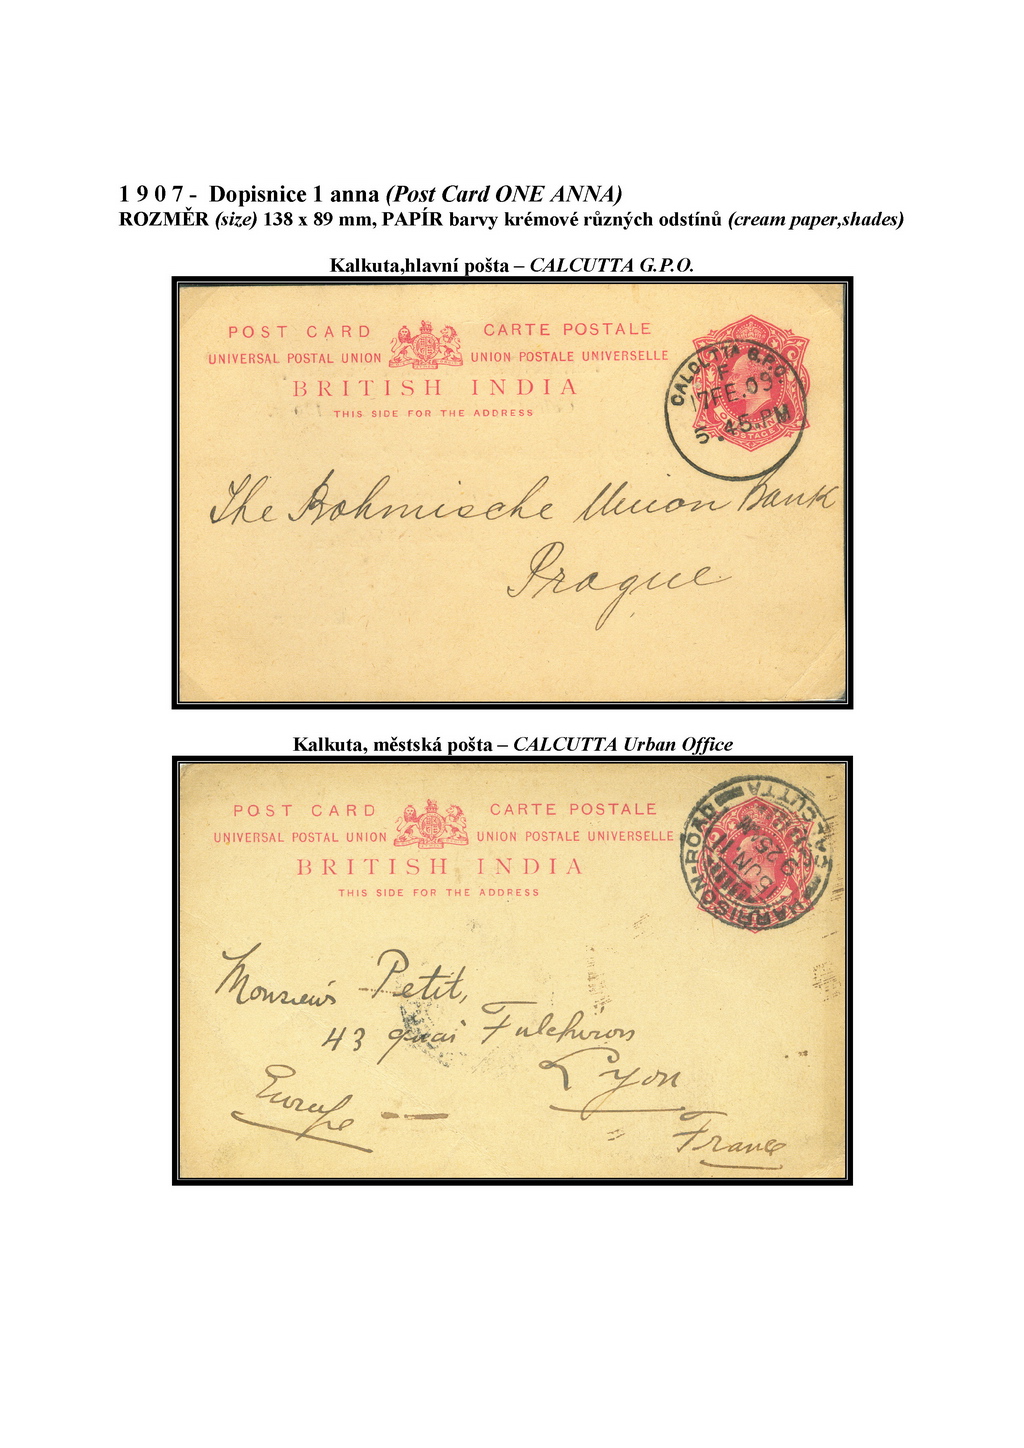 1 9 0 7 - Dopisnice 1 anna (Post Card ONE ANNA)
ROZMĚR (size) 138 x 89 mm, PAPÍR barvy krémové různých odstínů (cream paper,shades)
Kalkuta,hlavní pošta – CALCUTTA G.P.O.
POST CARD CARTE POSTALE
UNIVERSAL POSTAL UNION UNION POSTALE UNIVERSELLE
BRITISH INDIA
THIS SIDE FOR THE ADDRESS
CALCUTTA G.P.O.
F
17FE.09
5.45.PM
POSTAGE
The Bohmische Union Bank
Prague
Kalkuta, městská pošta – CALCUTTA Urban Office
POST CARD CARTE POSTALE
UNIVERSAL POSTAL UNION UNION POSTALE UNIVERSELLE
BRITISH INDIA
THIS SIDE FOR THE ADDRESS
HARRISON-ROAD
CALCUTTA
Monsieur Petit,
43 quai Fulchiron
Lyon
Europe
France